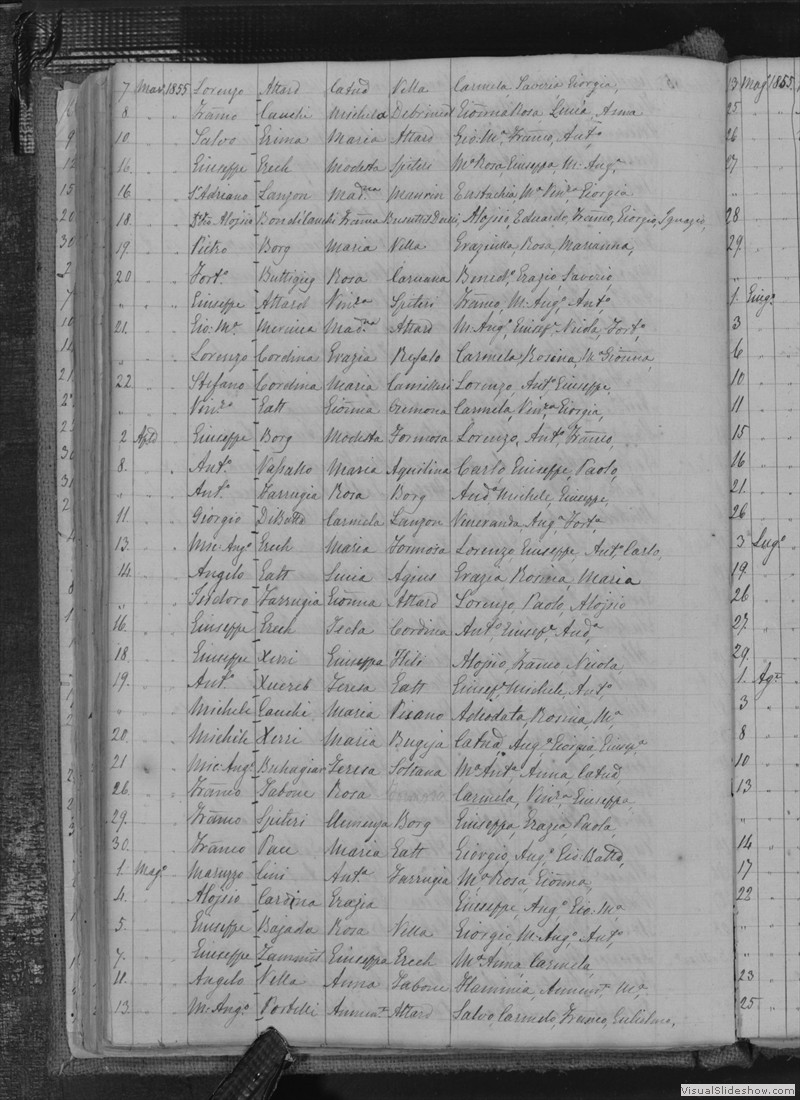 7 Mar. 1855 Lorenzo Attard Catnd Vella Carmela, Saveria Giorgia,
8 " Franco Cauchi Michela Debrincat Gionna Rosa Lucia, Anna
10 " Salvo Grima Maria Attard Gio: Ma, Franco, Anto,
16 " Giuseppe Grech Modesta Spiteri Ma Rosa, Giuseppa, M. Anga,
16 " Sr Adriano Lanzon Madna Maurin Eustachia, Ma Vinza, Giorgia
18 Aloisio Franca Aloisio, Eduardo, Franco, Giorgio, Ignazio,
19 " Pietro Borg Maria Vella Graziulla, Rosa, Marianna,
20 " Forto Buttigieg Rosa Caruana Bened, Grazio, Saverio,
" " Giuseppe Attard Vinza Spiteri Franco, M. Ango, Anto,
21. " Gio: Ma Mercieca Madna Attard M. Ango, Giuse, Nicola, Forto,
" " Lorenzo Cordina Grazia Refalo Carmela, Rosina, Ma Gionna,
22 " Stefano Cordina Maria Camilleri Lorenzo, Anto, Giuseppe,
" " Vinzo Gatt Gionna Cremona Carmela, Vinza, Giorgia,
2 Apl Giuseppe Borg Modesta Formosa Lorenzo, Anto, Franco,
8. " Anto Vassallo Maria Aquilina Carlo, Giuseppe, Paolo,
" " Anto Farrugia Rosa Borg Anda Michele, Giuseppe,
11 " Giorgio DiBatta Carmela Lanzon Veneranda, Anga, Forta
13. " Mic: Ango Grech Maria Formosa Lorenzo, Giuseppe, Anto Carlo,
14. " Angelo Gatt Lucia Agius Grazia, Rosina, Maria
" " Isidoro Farrugia Gionna Attard Lorenzo, Paolo, Aloisio
16. " Giuseppe Grech Tecla Cordina Anto, Giusepe, Anda,
18 " Giuseppe Xerri Giuseppa Aloisio, Franco, Nicola,
19. " Anto Xuereb Teresa Gatt Giusepe Michele, Anto
" " Michele Cauchi Maria Pisano Adeodata, Rosina, Ma
20. " Michele Xerri Maria Bugeja Catnd, Anga, Giorgia, Giusepa
21 " Mic: Ango Buhagiar Teresa Soltana Ma Anta, Anna, Catnd,
26. " Franco Tabone Rosa Carmela, Vinza, Giuseppa,
29. " Franco Spiteri Clemenza Borg Giuseppa, Grazia, Paola,
30. " Franco Pace Maria Gatt Giorgio, Ango, Gio: Batta,
1. Mago Maruzzo Cini Anta Farrugia Ma Rosa, Gionna,
4. " Aloisio Cardina Grazia Giuseppe, Ango, Gio: Ma
5. " Giuseppe Bajada Rosa Vella Giorgio, M. Ango, Anto,
7. " Giuseppe Zammit Giuseppa Grech Ma Anna, Carmela,
11. " Angelo Vella Anna Tabone Ma,
13. " M: Ango Portelli Attard Salvo, Carmelo, Franco,
13 Mago 1855.
25 "
26 "
27 "
" "
28 "
29. "
" "
1. Giugo
3 "
6 "
10 "
11 "
15 "
16 "
21. "
26 "
3 Lugo
19. "
26 "
27. "
29. "
1. Ago
3 "
8 "
10 "
13 "
" "
14 "
17 "
22 "
" "
" "
23 "
25 "
VisualSlideshow.com